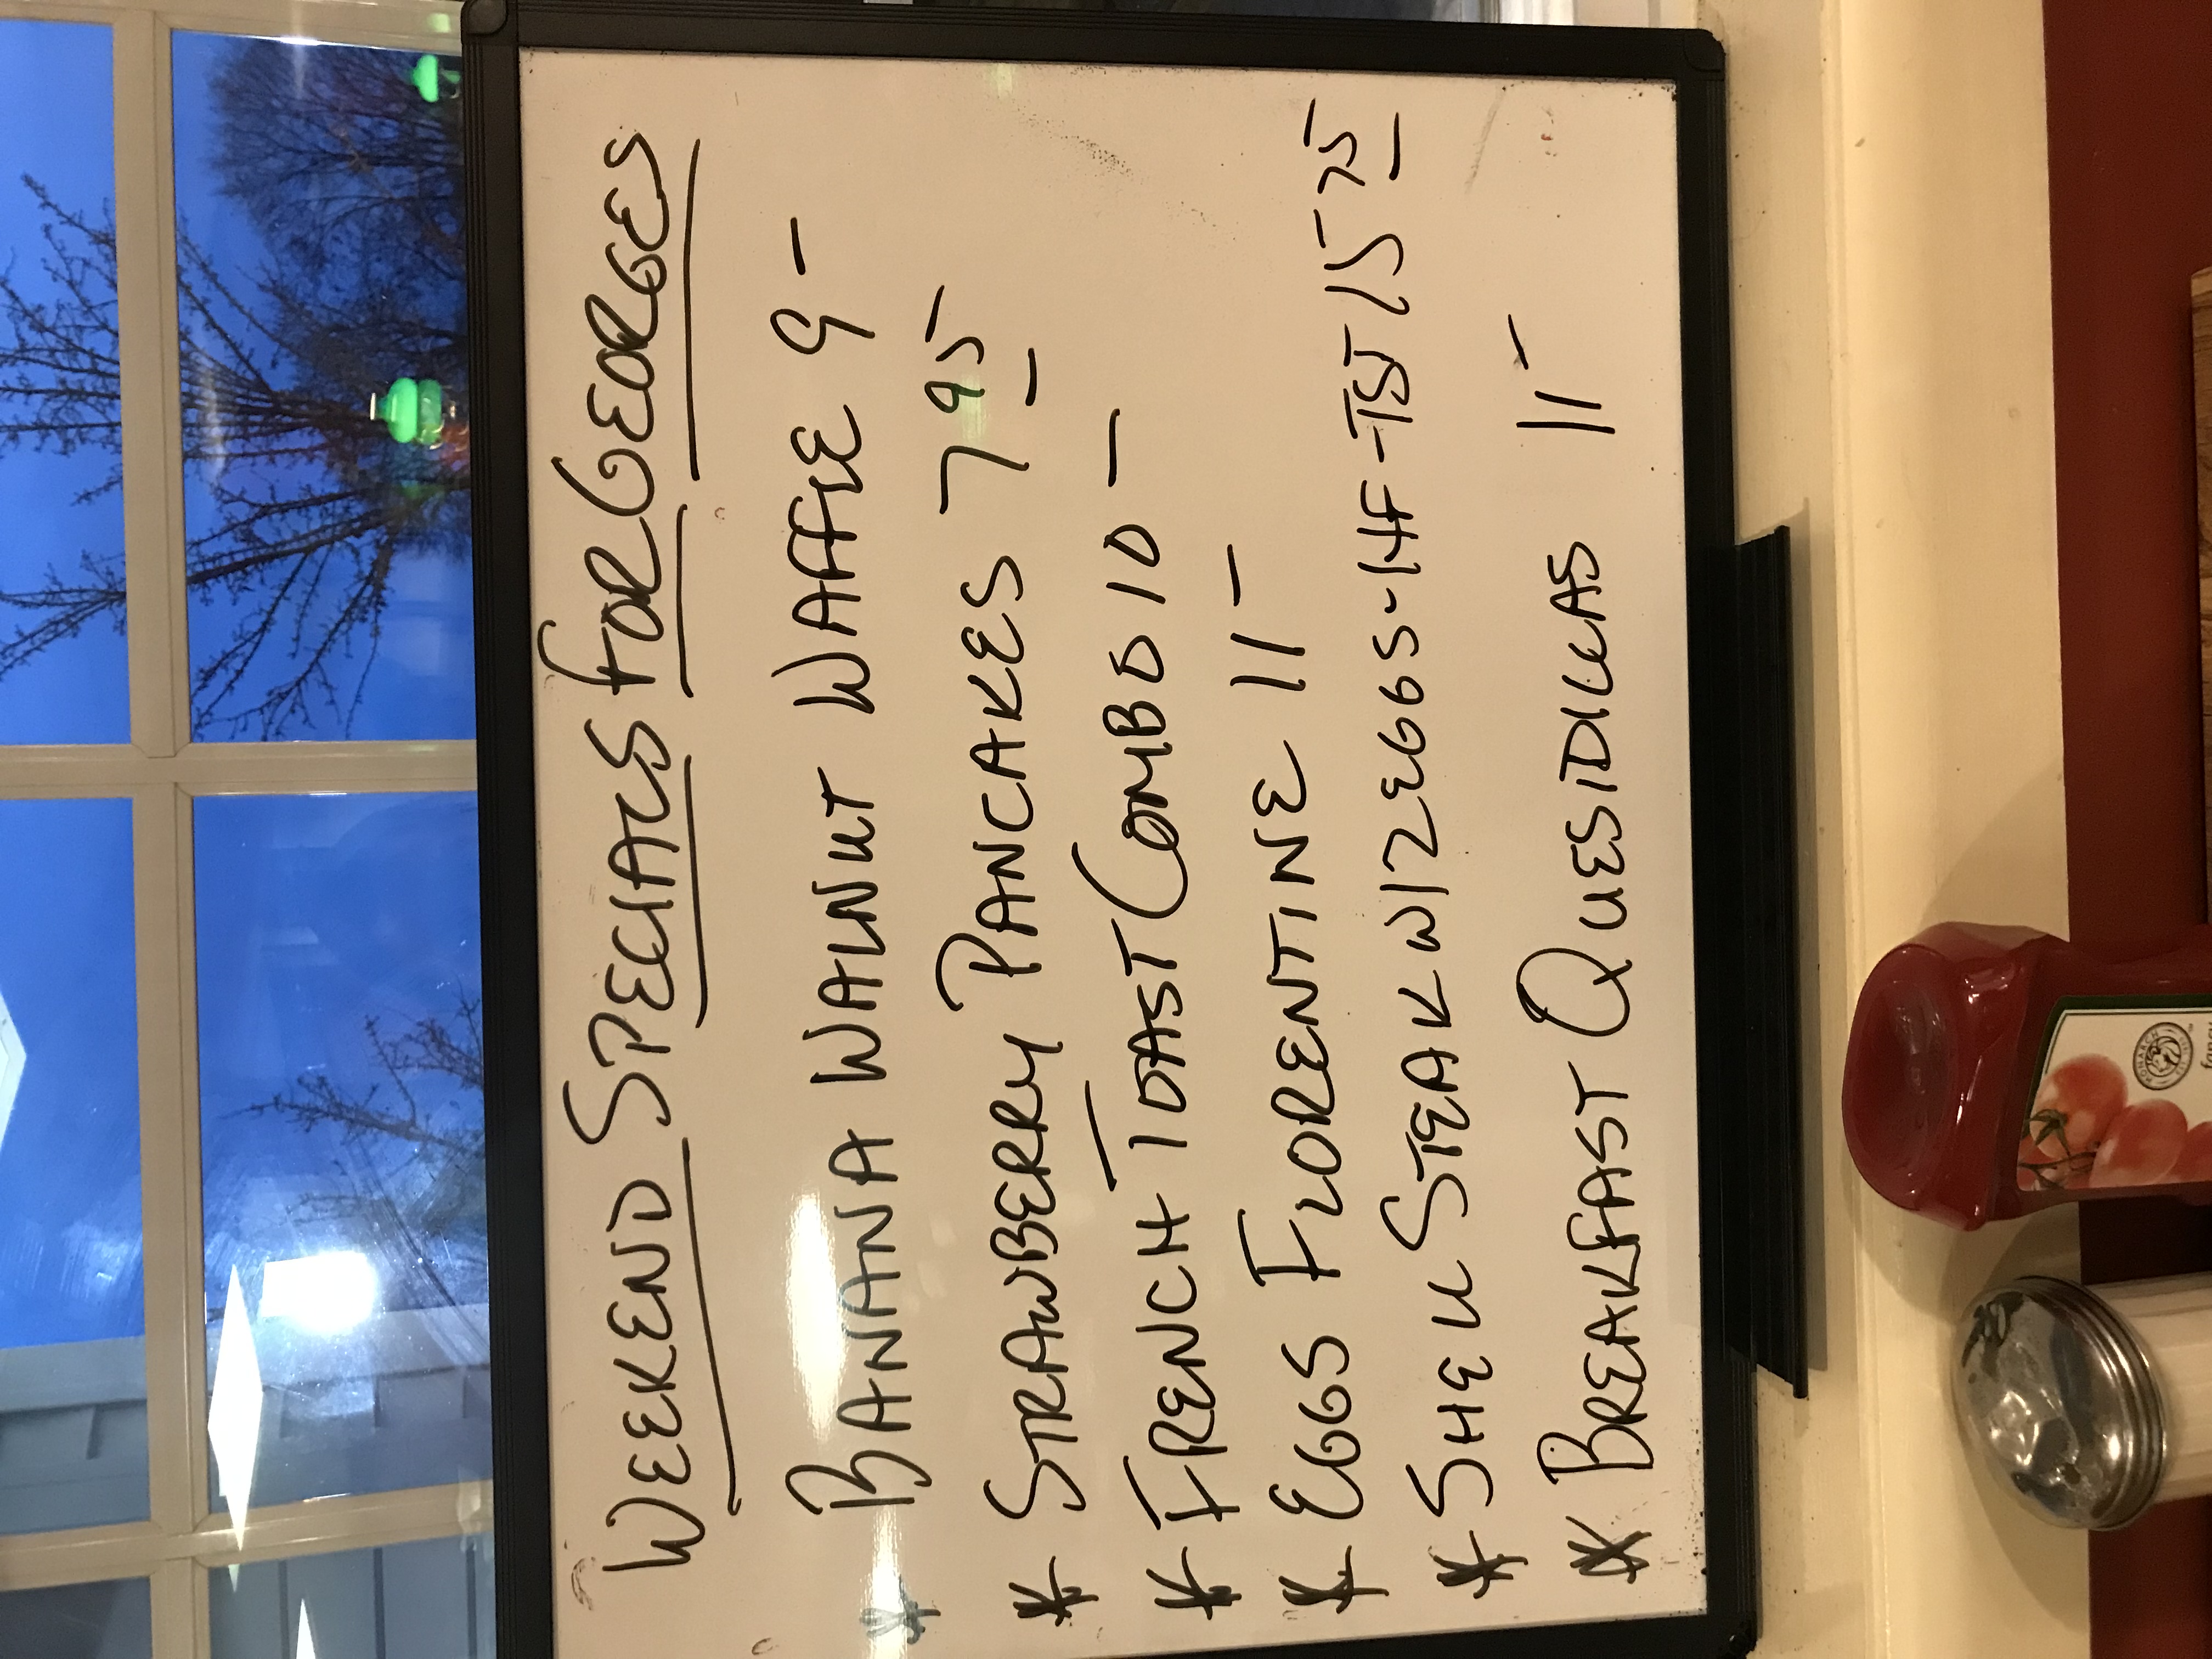 WEEKEND SPECIALS FOR GEORGES
* BANANA WALNUT WAFFLE 9-
* STRAWBERRY PANCAKES 7 95
* FRENCH TOAST COMBO 10-
* EGGS FLORENTINE 11-
* SHELL STEAK W/2 EGGS-HF-TST 15 75
* BREAKFAST QUESIDILLAS 11-
MONARCH